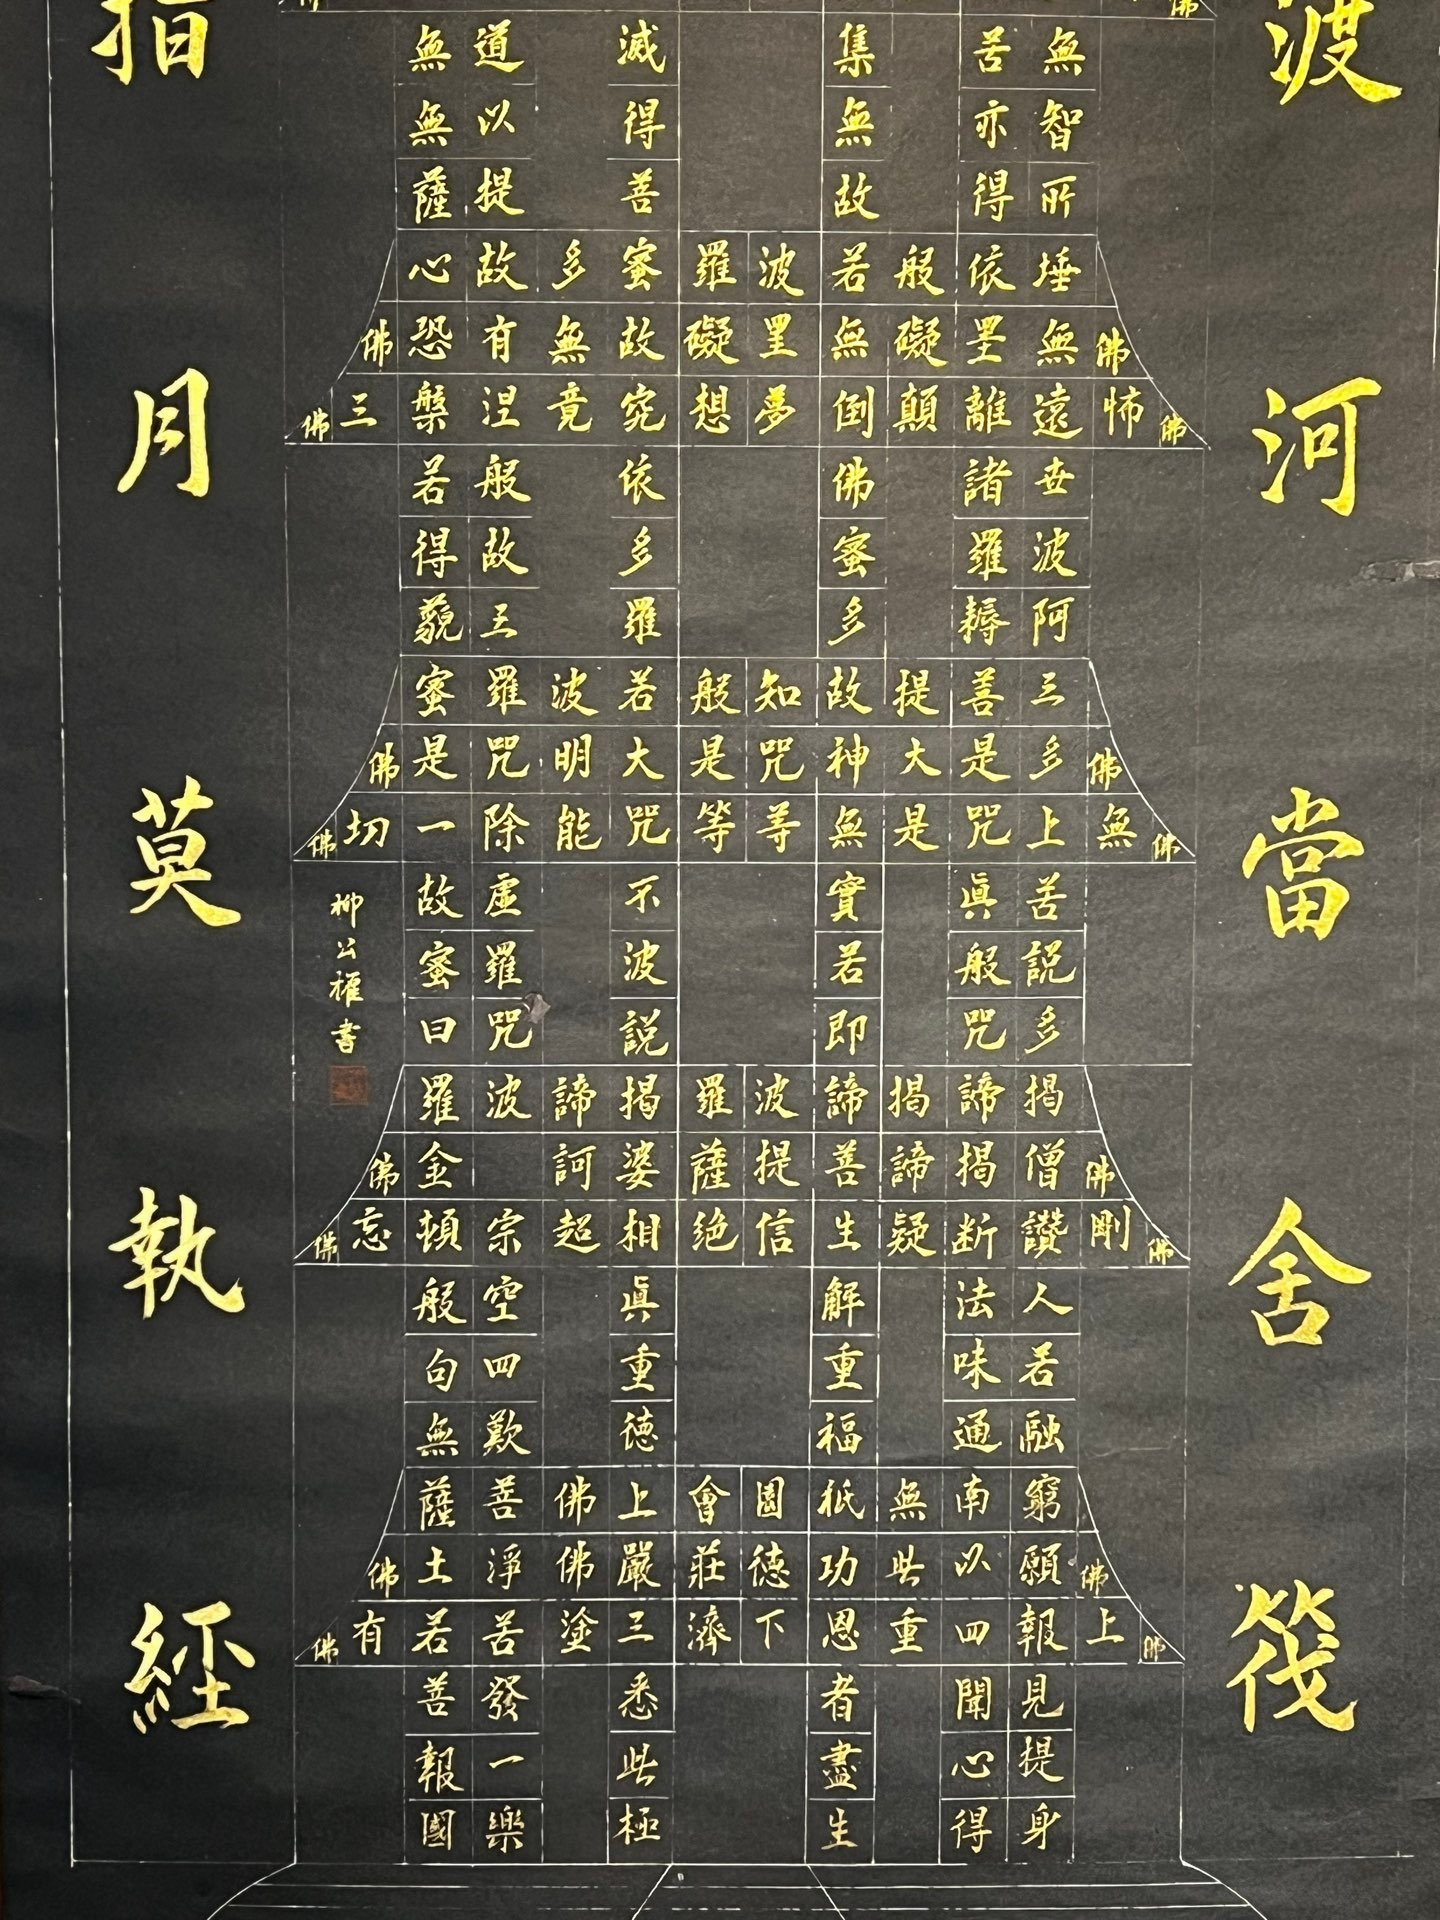 渡河當舍筏
無苦集滅道無
智亦無得以無
所得故菩提薩
埵依般若波羅蜜多故心
佛無罣礙無罣礙故無有恐佛
佛怖遠離顛倒夢想究竟涅槃三佛
世諸佛依般若
波羅蜜多故得
阿耨多羅三藐
三菩提故知般若波羅蜜
佛多是大神咒是大明咒是佛
佛無上咒是無等等咒能除一切佛
苦眞實不虛故
說般若波羅蜜
多咒即說咒曰
揭諦揭諦波羅揭諦波羅
佛僧揭諦菩提薩婆訶金佛
佛剛讚断疑生信絶相超宗頓忘佛
人法解眞空般
若味重重四句
融通福德歎無
窮南無祇園會上佛菩薩
佛願以此功德莊嚴佛淨土佛
佛上報四重恩下濟三塗苦若有佛
見聞者悉發菩
提心盡此一報
身得生極樂國
柳公權書
指月莫執經